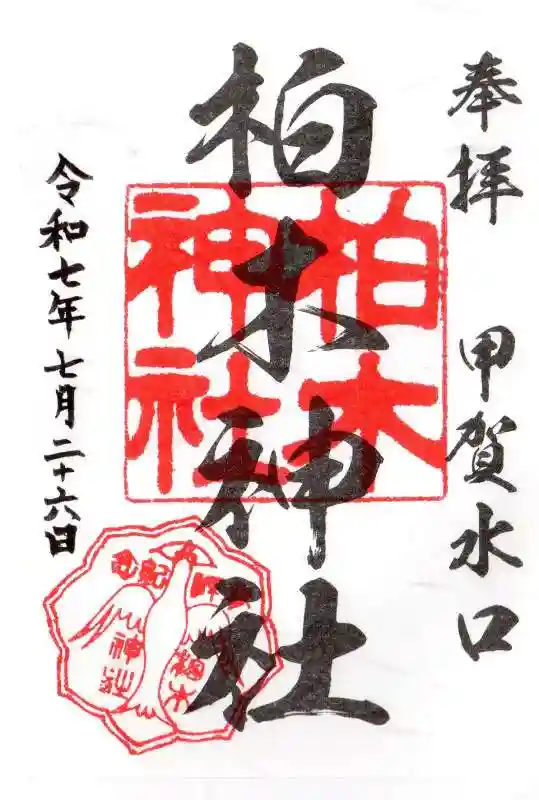 奉拝 甲賀水口
柏木神社
柏木神社
令和七年七月二十六日
柏木
神社